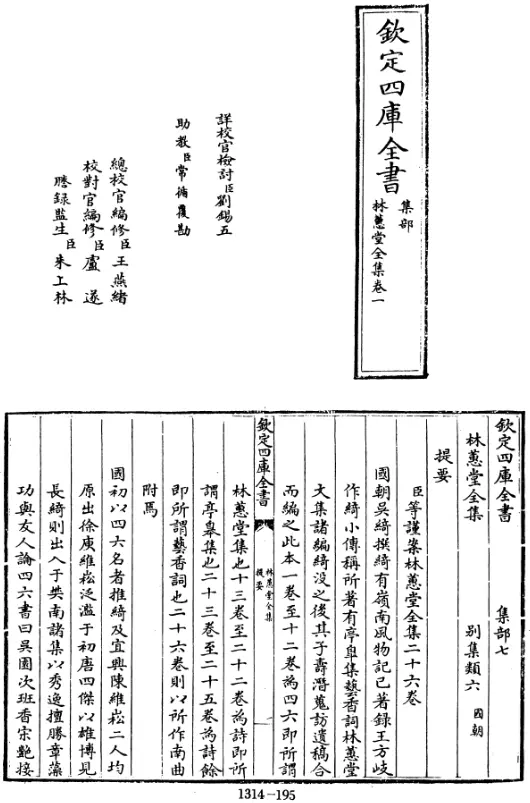 欽定四庫全書
集部
林蕙堂全集卷一
詳校官檢討臣劉錫五
助教臣常循覆勘
總校官編修臣王燕緒
校對官編修臣盧遂
謄錄監生臣朱上林
欽定四庫全書 集部七
林蕙堂全集 別集類六 國朝
提要
臣等謹案林蕙堂全集二十六卷
國朝吳綺撰綺有嶺南風物記已著錄王方岐
作綺小傳稱所著有亭臯集藝香詞林蕙堂
大集諸編綺没之後其子壽潛蒐訪遺稿合
而編之此本一卷至十二卷為四六即所謂
欽定四庫全書
林蕙堂全集
提要
一
林蕙堂集也十三卷至二十二卷為詩即所
謂亭臯集也二十三卷至二十五卷為詩餘
即所謂藝香詞也二十六卷則以所作南曲
附焉
國初以四六名者推綺及宜興陳維崧二人均
原出徐庾維崧泛濫于初唐四傑以雄博見
長綺則出入于樊南諸集以秀逸擅勝章藻
功與友人論四六書曰吳園次班香宋艶接
1314-195